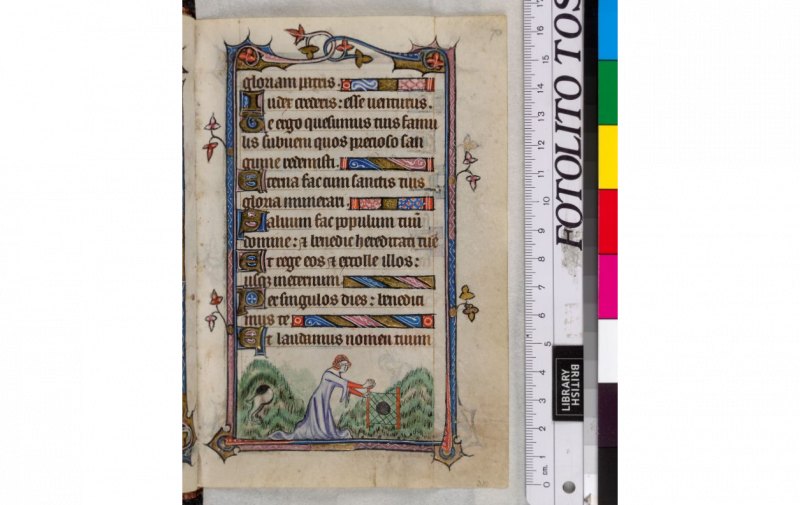 gloriam patris.
Iudex crederis: esse uenturus.
Te ergo quesumus tuis famu
lis subueni quos precioso san
guine redemisti.
Eterna fac cum sanctis tuis
gloria munerari.
Saluum fac populum tuũ
domine: ⁊ benedic hereditati tue
Et rege eos ⁊ extolle illos:
usq; in eternum.
Per singulos dies: benedici
mus te
Et laudamus nomen tuum
70
FOTOLITO TOS
BRITISH
LIBRARY
17
15
14
13
12
11
10
9
8
7
6
5
4
3
2
1
0 cm.